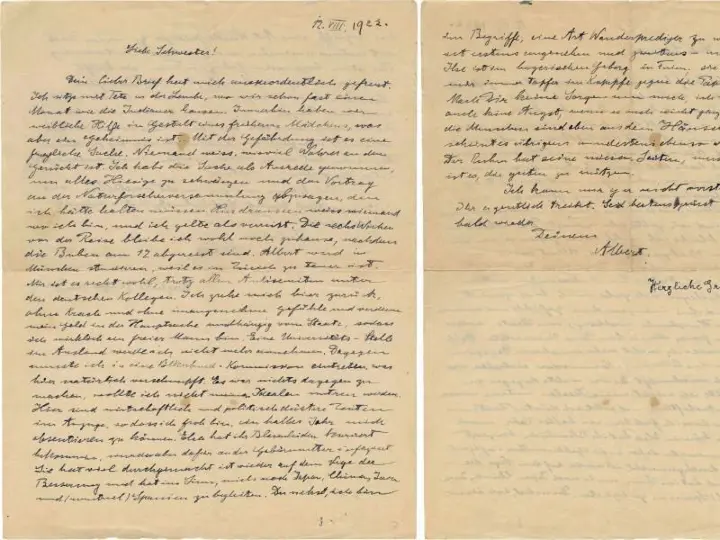 12. VIII. 1922.
Liebe Schwester!
Dein lieber Brief hat mich ausserordentlich gefreut.
Ich sitze mit in der Laube, wo wir schon fast einen
Monat wie die Indianer hausen. Immerhin haben wir
weibliche Hilfe in Gestalt eines früheren Mädchens, was
aber ein Geheimnis ist. Mit der Gefährdung ist es eine
fragliche Sache. Niemand weiss, wieviel Wahres an dem
Gerücht ist. Ich habe die Sache als Ausrede genommen,
um alles Hiesige zu schwänzen und den Vortrag
an der Naturforscherversammlung abzusagen, den
ich hätte halten müssen. Hier draussen weiss niemand
wo ich bin, und ich gelte als verreist. Die sechs Wochen
vor der Reise bleibe ich wohl noch zuhause, nachdem
die Buben am 17 abgereist sind. Albert wird in
München studieren, weil es in Zürich zu teuer ist.
Mir ist es recht wohl, trotz allen Antisemiten unter
den deutschen Kollegen. Ich gehe mich hier zurück,
ohne Krach und ohne unangenehme Gefühle und verdiene
mein Geld in der Hauptsache unabhängig vom Staate, sodass
ich wirklich ein freier Mann bin. Eine Universitäts-Stelle
im Ausland werde ich nicht mehr annehmen. Dagegen
musste ich in eine Völkerbund-Kommission eintreten, was
hier natürlich verschnupft. Es war nichts dagegen zu
machen, wollte ich nicht meinen Idealen untreu werden.
Hier sind wirtschaftlich und politisch düstere Zeiten
im Anzuge, sodass ich froh bin, ein halbes Jahr mich
absentieren zu können. Elsa hat ihr Blasenleiden kuriert
bekommen, wurde aber dafür an der Gebärmutter infiziert.
Sie hat viel durchgemacht ist wieder auf dem Wege der
Besserung und hat im Sinn, mich nach Japan, China, Java
und (eventuel) Spanien zu begleiten. Du siehst, ich bin
im Begriffe, eine Art Wanderprediger zu
ist erstens angenehm und zweitens
Ilse ist im bayerischen Gebirg in Ferien,
immer tapfer im Kampfe gegen die
Mache Dir keine Sorgen um mich, ich
auch keine Angst, wenn es auch nicht ganz
die Menschen sind eben aus dem Häuschen
scheint es übrigens mindestens ebenso
Der Carlen hat seine miesen Seiten,
ist es, die guten zu nützen.
Ich kann nur gar nicht
Ihr eigentlich treibt. Seid herzl. gegrüsst
bald wieder
Deinem
Albert.
Herzliche